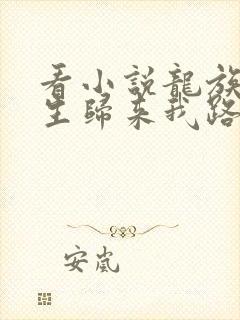 看小說龍族
生歸來我路
安嵐